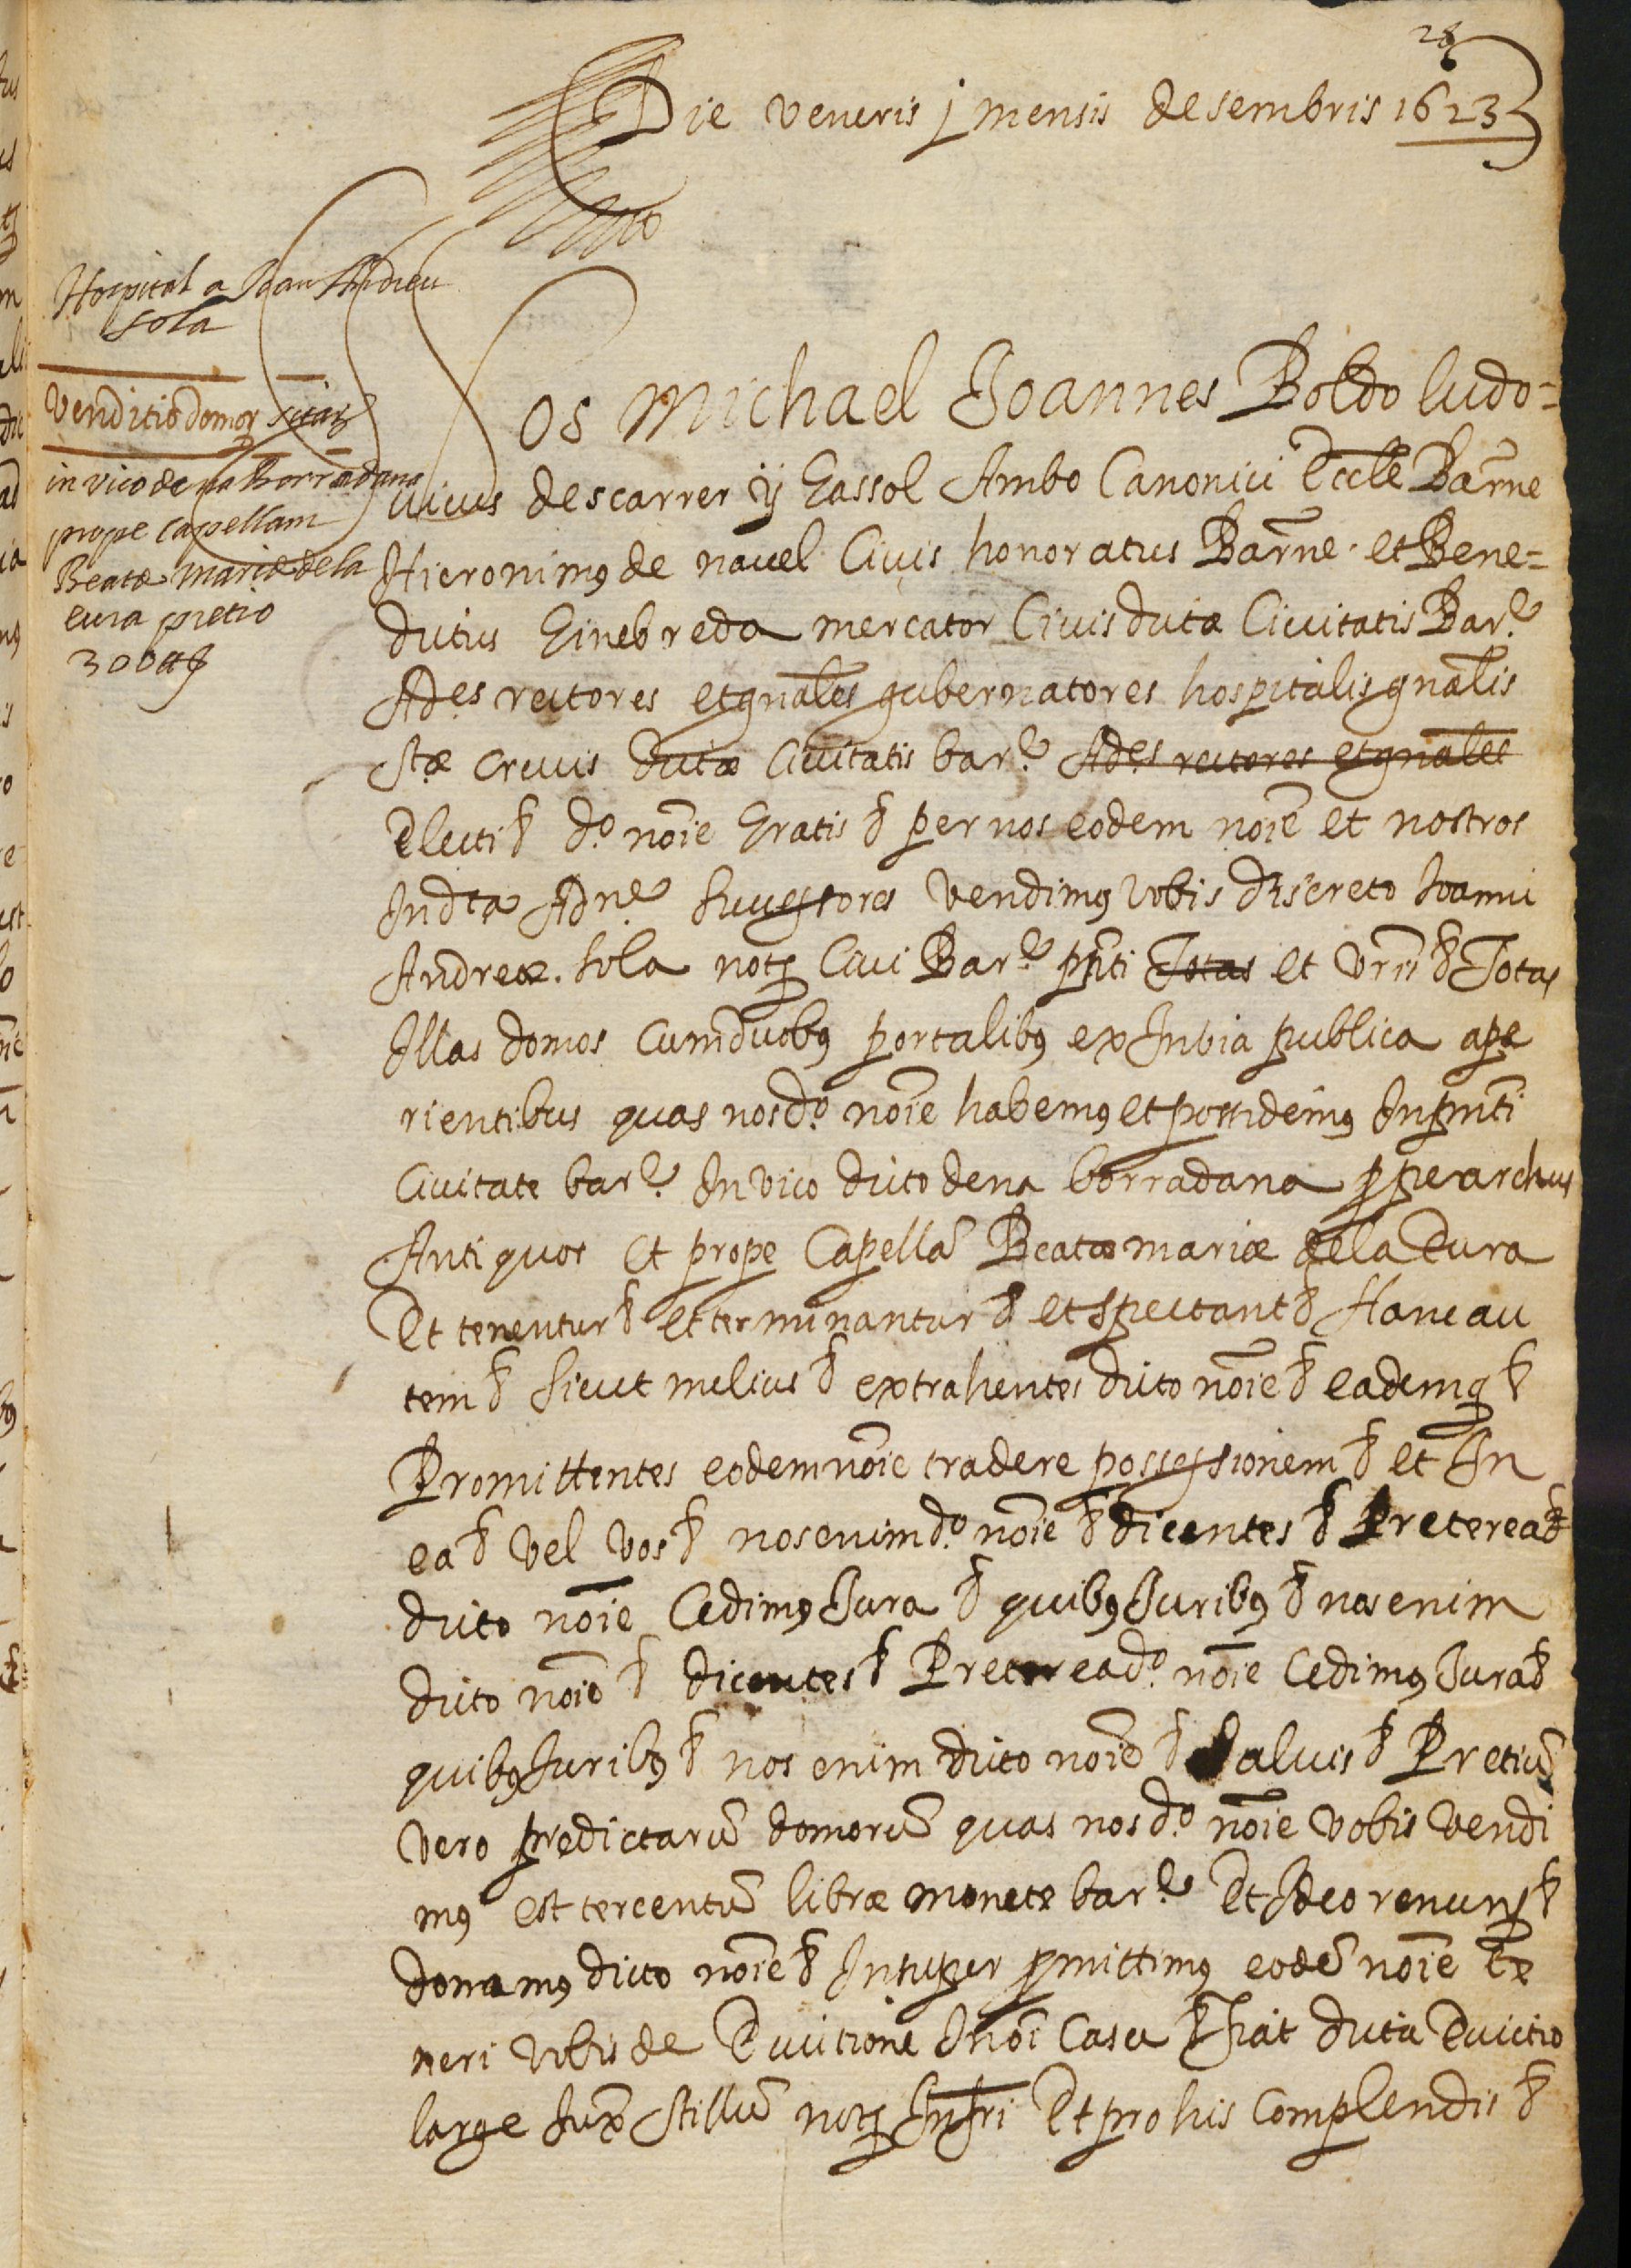 28
Die veneris j mensis desembris 1623
Hospital a Joan Andreu
sola
Venditio domorum sitarum
in vico de na Borradana
prope capellam
Beatæ mariæ de la
cura pretio
300 ℔
Nos Michael Joannes Boldo ludo=
vicus descarrer y Gassol Ambo Canonici Eccle Barne
Hieronimus de navel Civis honoratus Barne. et Bene=
dictus Ginebreda mercator Civis dictæ Civitatis Bar.e
Ad.es rectores et gnales gubernatores hospitalis gnalis
Stæ crucis dictæ Civitatis bar.e Ad.es rectores et gnales
Electi & d.o noie Gratis & per nos eodem noie et nostros
In dta Ad.ne successores vendimus vobis discreto Joanni
Andreæ. sola noty Civi Bar.e pnti Totas et vris & Totas
Illas domos cum duobus portalibus ex In via publica ape
rientibus quas nos d.o noie habemus et possidemus In pnti
Civitate bar.e In vico dicto dena borradana prope archus
Antiquos et prope Capellã Beatæ mariæ dela Cura
Et tenentur & et terminantur & et spectant & Hanc au
tem & sicut melius & extrahentes dicto noie & eademq &
Promittentes eodem noie tradere possessionem & et In
ea & vel vos & nos enim d.o noie & dicentes & Preterea &
dicto noie Cedimus Jura & quibus Juribus & nos enim
dicto noie & dicentes & Preterea d.o noie Cedimus Jura &
quibus Juribus & nos enim dicto noie & Salvis & Pretiũ
vero predictarũ domorũ quas nos d.o noie vobis vendi
mus est tercentũ libræ monete bar.e Et Ideo renuns &
donamus dicto noie & Insuper promittimus eodẽ noie te
neri vobis de Evictione In oi Casu & Fiat dicta Evictio
large Jux stillũ noty Infri Et pro his Complendis &